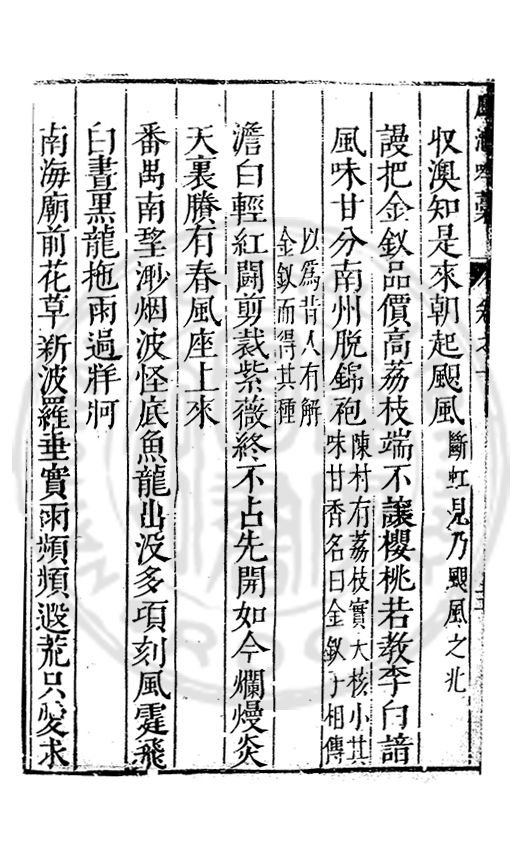 収澳知是來朝起颶風斷虹見乃颶風之兆
謾把金釵品價高荔枝端不讓櫻桃若教李白諳
風味甘分南州脫錦袍陳村有荔枝實大核小其味甘香名曰金釵子相傳
以爲昔人有解金釵而得其種
澹白輕紅鬪剪裁紫薇終不占先開如今爛熳炎
天裏賸有春風座上來
番禺南望渺烟波怪底魚龍出没多頃刻風霆飛
白晝黑龍拖雨過牂牁
南海廟前花草新波羅垂實雨頻頻遐荒只愛求